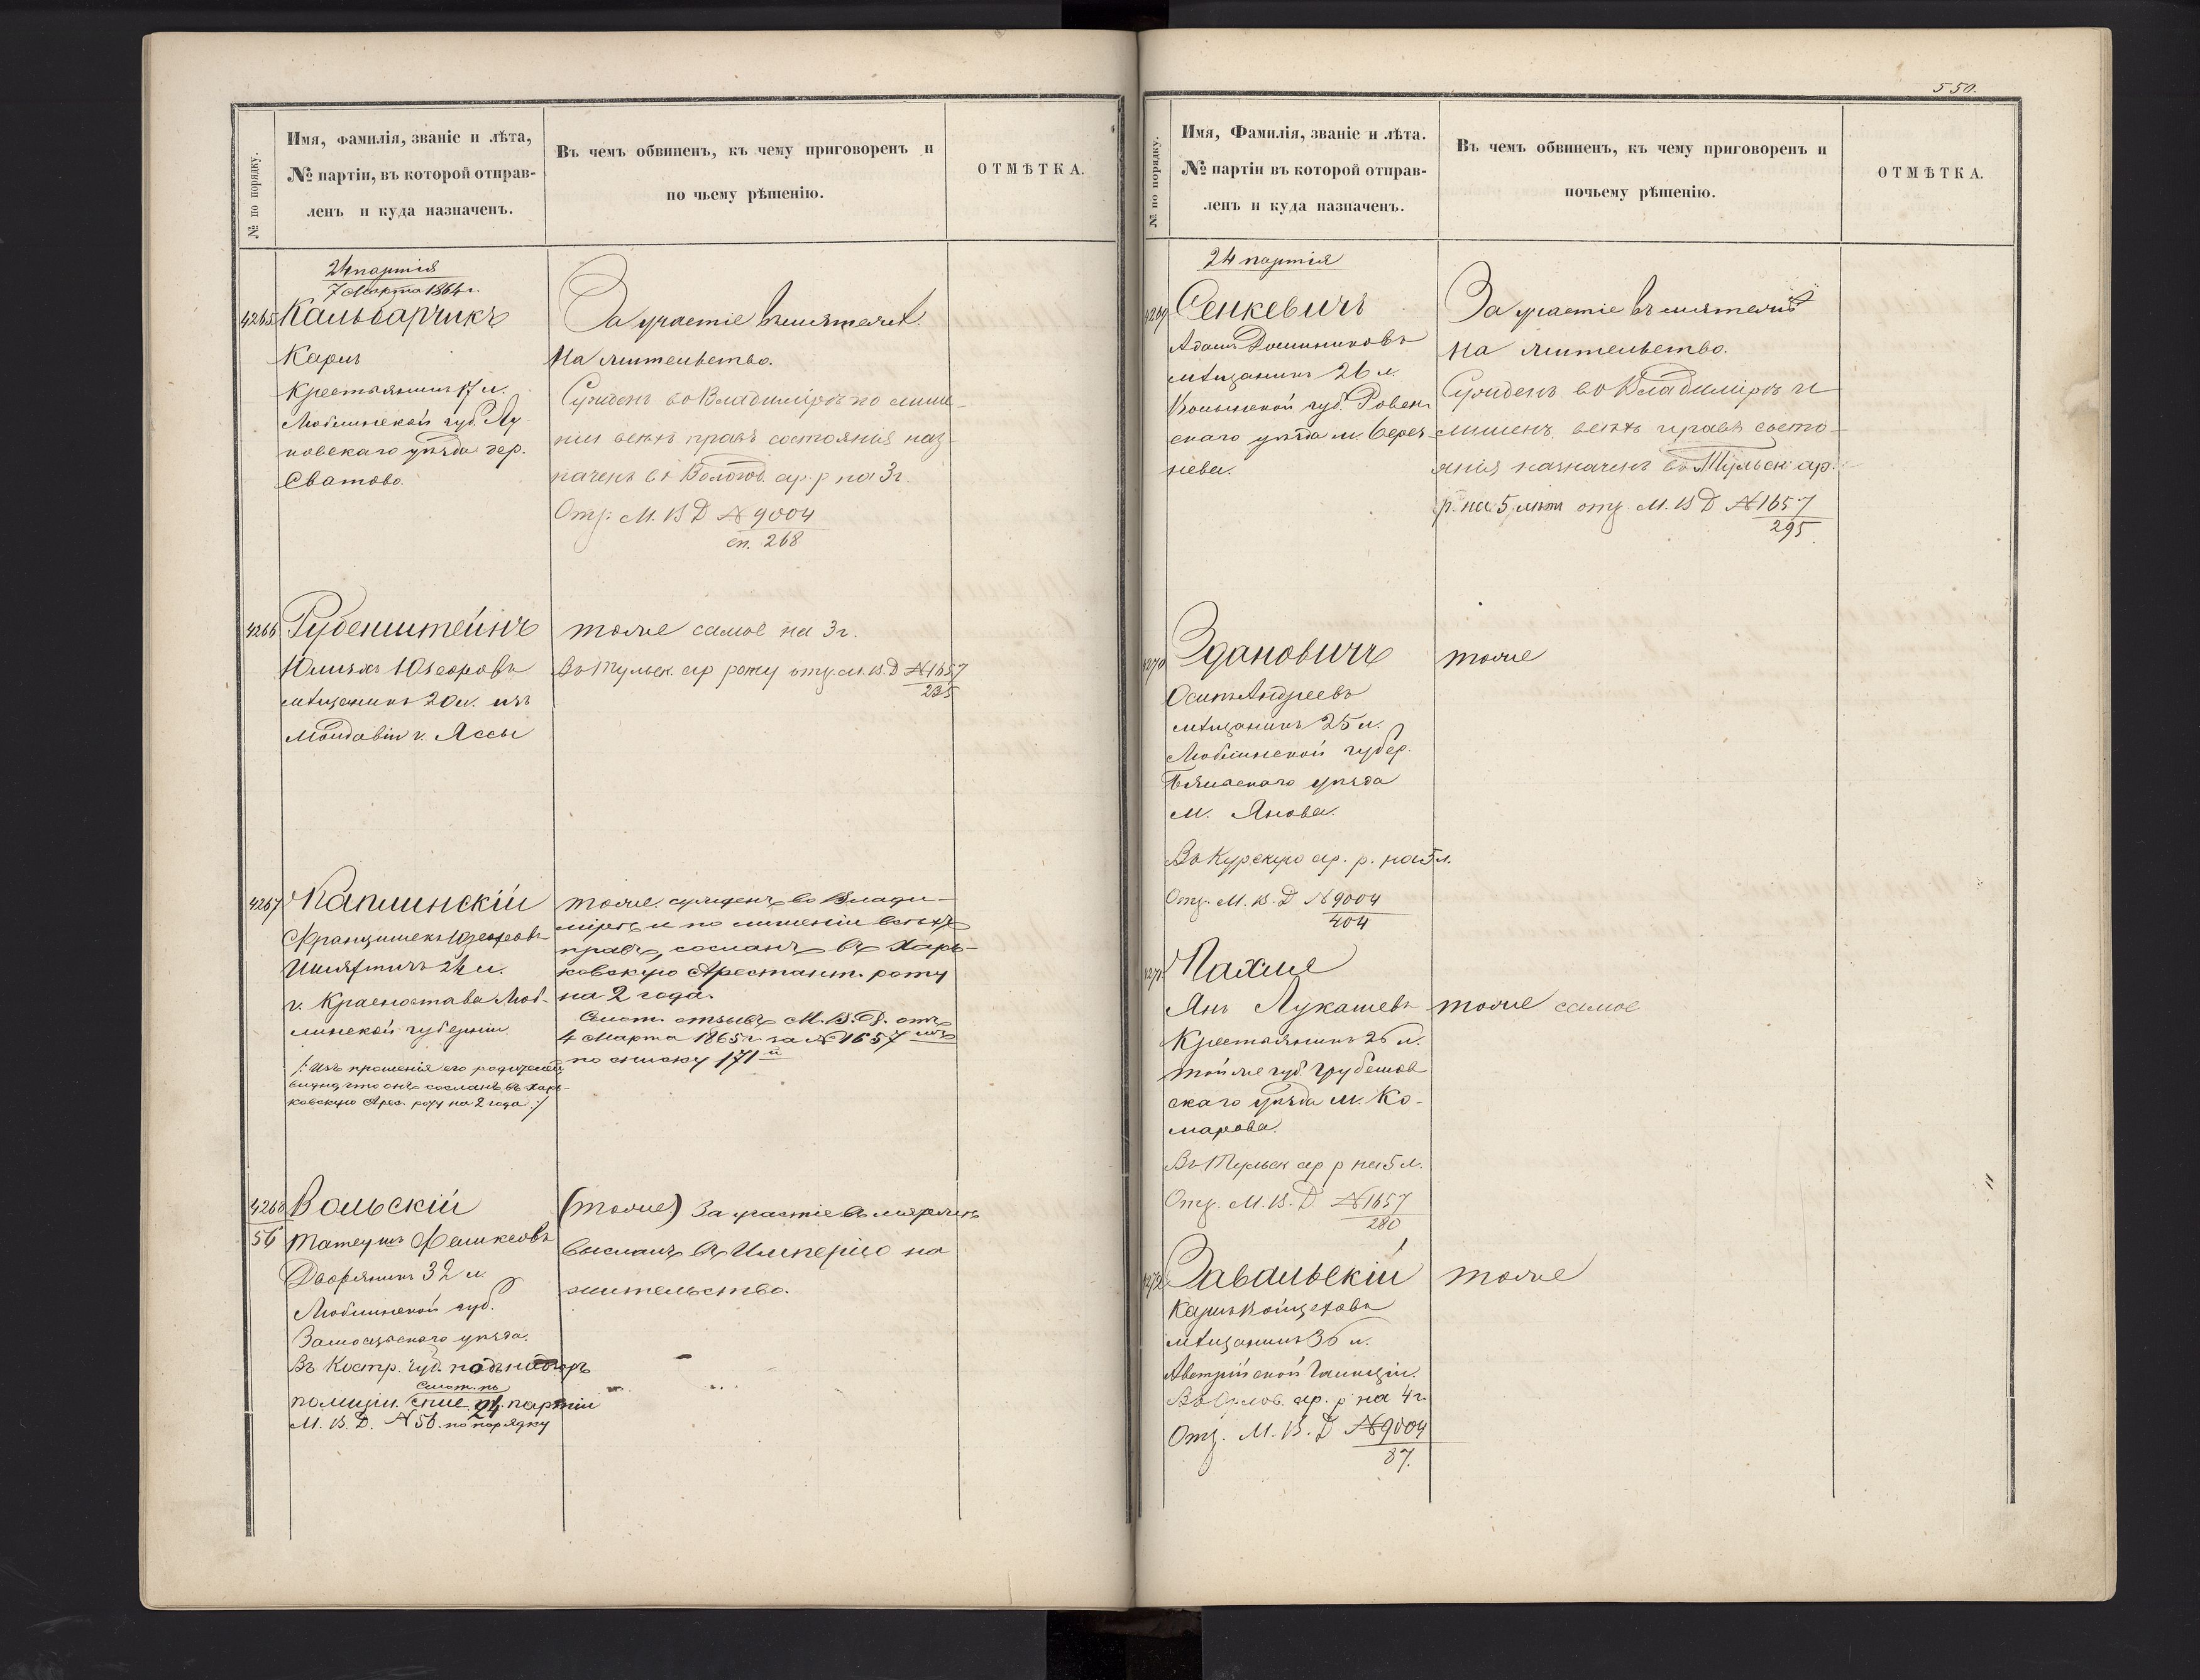 № по порядку.
Имя, фамилія, званіе и лѣта,
№ партіи, въ которой отправ-
ленъ и куда назначенъ.
Въ чемъ обвиненъ, къ чему приговоренъ и
по чьему рѣшенію.
ОТМѢТКА.
24 партія
7 Марта 1864 г.
4265 Кальварчикъ
Карлъ
Крестьянинъ 17 л.
Люблинской губ. Лу-
ковскаго уѣзда дер.
Сватово.
За участіе въ мятежѣ.
На жительство.
Сужденъ во Владимірѣ по лише-
ніи всѣхъ правъ состоянія наз-
наченъ въ Вологод. ар. р на 3 г.
Отз: М. В Д № 9004
сп. 268
4266 Рубенштейнъ
Юліухъ Юзефовъ
мѣщанинъ 20 л. изъ
Молдавіи г. Яссы
тоже самое на 3 г.
Въ Тульск. ар роту отз. М. В. Д № 1657
235
4267 Каплинскій
Францишекъ Юзефовъ
Шляхтичъ 24 л.
г. Красностава Люб-
линской губерніи
/: Изъ прошенія его родителей
видно что онъ сосланъ въ Харь-
ковскую Арес. роту на 2 года :/
тоже. сужденъ во Влади-
мірѣ и по лишеніи всѣхъ
правъ, сосланъ въ Харь-
ковскую Арестант. роту
на 2 года.
Смот. отзывъ М. В. Д. отъ
4 Марта 1865 г. за № 1657 мъ
по списку 171 й
4268 Вольскій
56 Матеушъ
Дворянинъ 32 л.
Люблинской губ.
Замосцьскаго уѣзда.
Въ Костр. губ. подъ надзоръ
полиціи. Смот. по
спис. 24 партіи
М. В. Д. № 56. по порядку
(тоже) За участіе въ мятежѣ
высланъ въ Имперію на
жительство.
550.
№ по порядку.
Имя, Фамилія, званіе и лѣта.
№ партіи въ которой отправ-
ленъ и куда назначенъ.
Въ чемъ обвиненъ, къ чему приговоренъ и
почьему рѣшенію.
ОТМѢТКА.
24 партія
4269 Сенкевичъ
Адамъ Доминиковъ
мѣщанинъ 26 л.
Волынской губ. Ровен-
скаго уѣзда м. Берез-
нева.
За участіе въ мятежѣ
На жительство.
Сужденъ во Владимірѣ и
лишенъ всѣхъ правъ состо-
янія назначенъ въ Тульск ар.
р. на 5 лѣтъ отз. М. В Д № 1657
295.
4270 Здановичъ
Осипъ Андреевъ
мѣщанинъ 25 л.
Люблинской губер.
Бяльскаго уѣзда
м. Янова.
Въ Курскую ар. р. на 5 л.
Отз. М. В. Д № 9004
404
тоже
4271 Пахля
Янъ Лукашевъ
Крестьянинъ 26 л.
той же губ. Грубешов
скаго уѣзда м. Ко-
марова.
Въ Тульск ар р на 5 л.
Отз. М. В. Д № 1657
280
тоже самое
4272 Завальскій
Карлъ Войцеховъ
мѣщанинъ 36 л.
Австрійской Галиціи.
Въ Орлов. ар. р на 4 г.
Отз. М. В. Д № 9004
87.
тоже